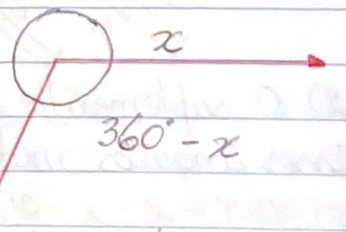 x
360° - x